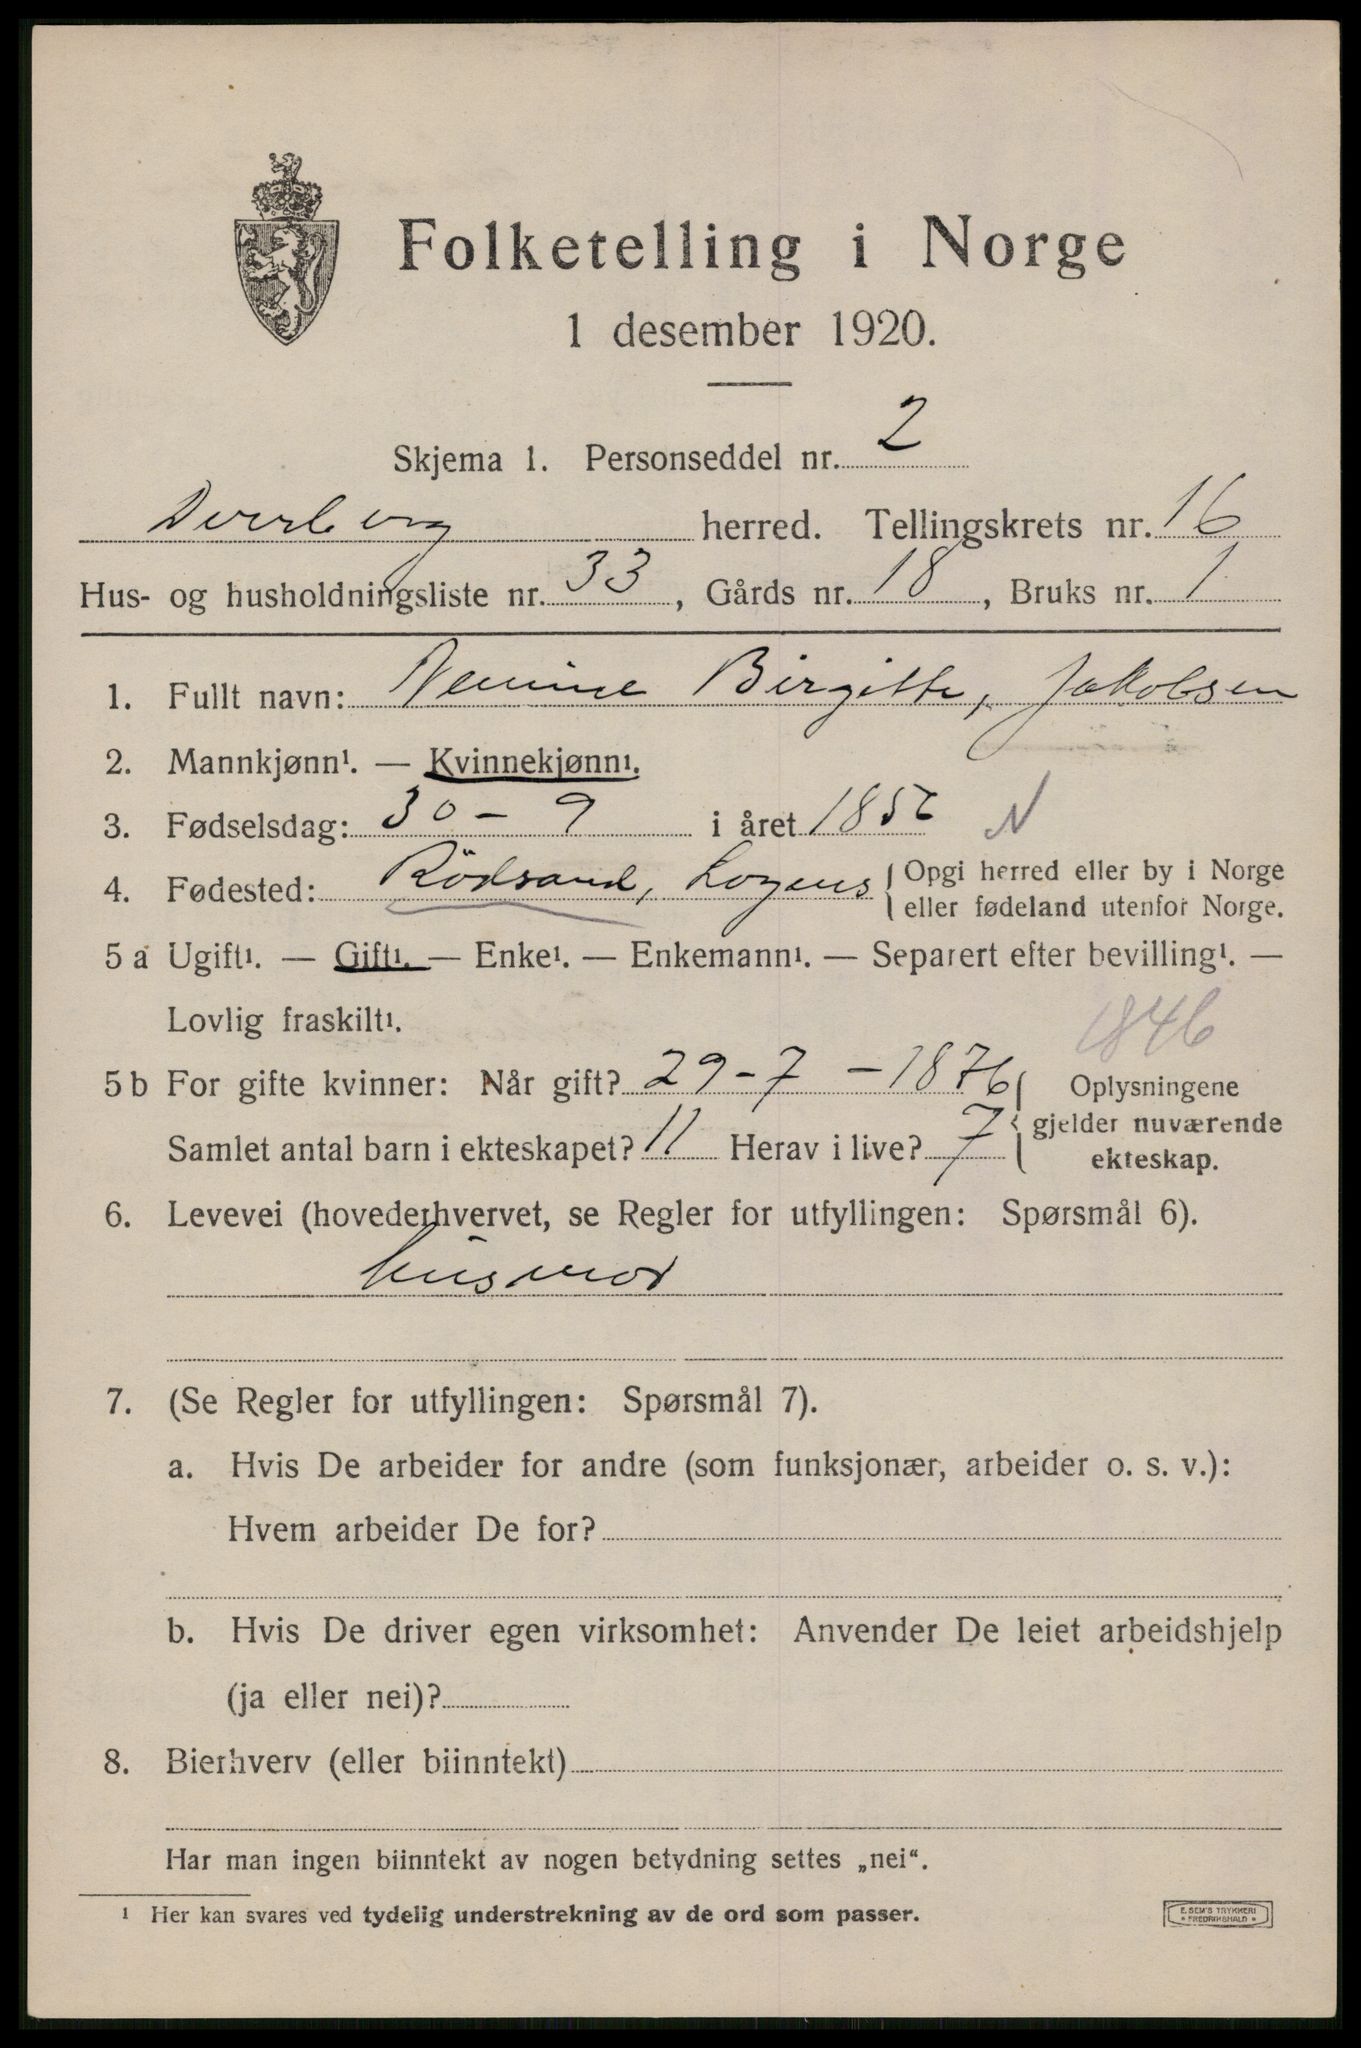 Folketelling i Norge
1 desember 1920.
Skjema 1. Personseddel nr. 2
Dverberg herred. Tellingskrets nr. 16
Hus- og husholdningsliste nr. 33, Gårds nr. 18, Bruks nr. 1
1. Fullt navn: Birgitte, Jakobsen
2. Mannkjønn¹. — Kvinnekjønn¹.
3. Fødselsdag: 30 - 9 i året 1856 N
4. Fødested: Rödsand, { Opgi herred eller by i Norge
eller fødeland utenfor Norge.
5 a Ugift¹. — Gift¹. — Enke¹. — Enkemann¹. — Separert efter bevilling¹. —
Lovlig fraskilt¹.
1846
5 b For gifte kvinner: Når gift? 29-7-1876 { Oplysningene
gjelder nuværende
Samlet antal barn i ekteskapet? 11 Herav i live? 7
ekteskap.
6. Levevei (hovederhvervet, se Regler for utfyllingen: Spørsmål 6).
husmor
7. (Se Regler for utfyllingen: Spørsmål 7).
a. Hvis De arbeider for andre (som funksjonær, arbeider o. s. v.):
Hvem arbeider De for?
b. Hvis De driver egen virksomhet: Anvender De leiet arbeidshjelp
(ja eller nei)?
8. Bierhverv (eller biinntekt)
Har man ingen biinntekt av nogen betydning settes „nei“.
¹ Her kan svares ved tydelig understrekning av de ord som passer.
E. SEM'S TRYKKERI
* FREDRIKSHALD *